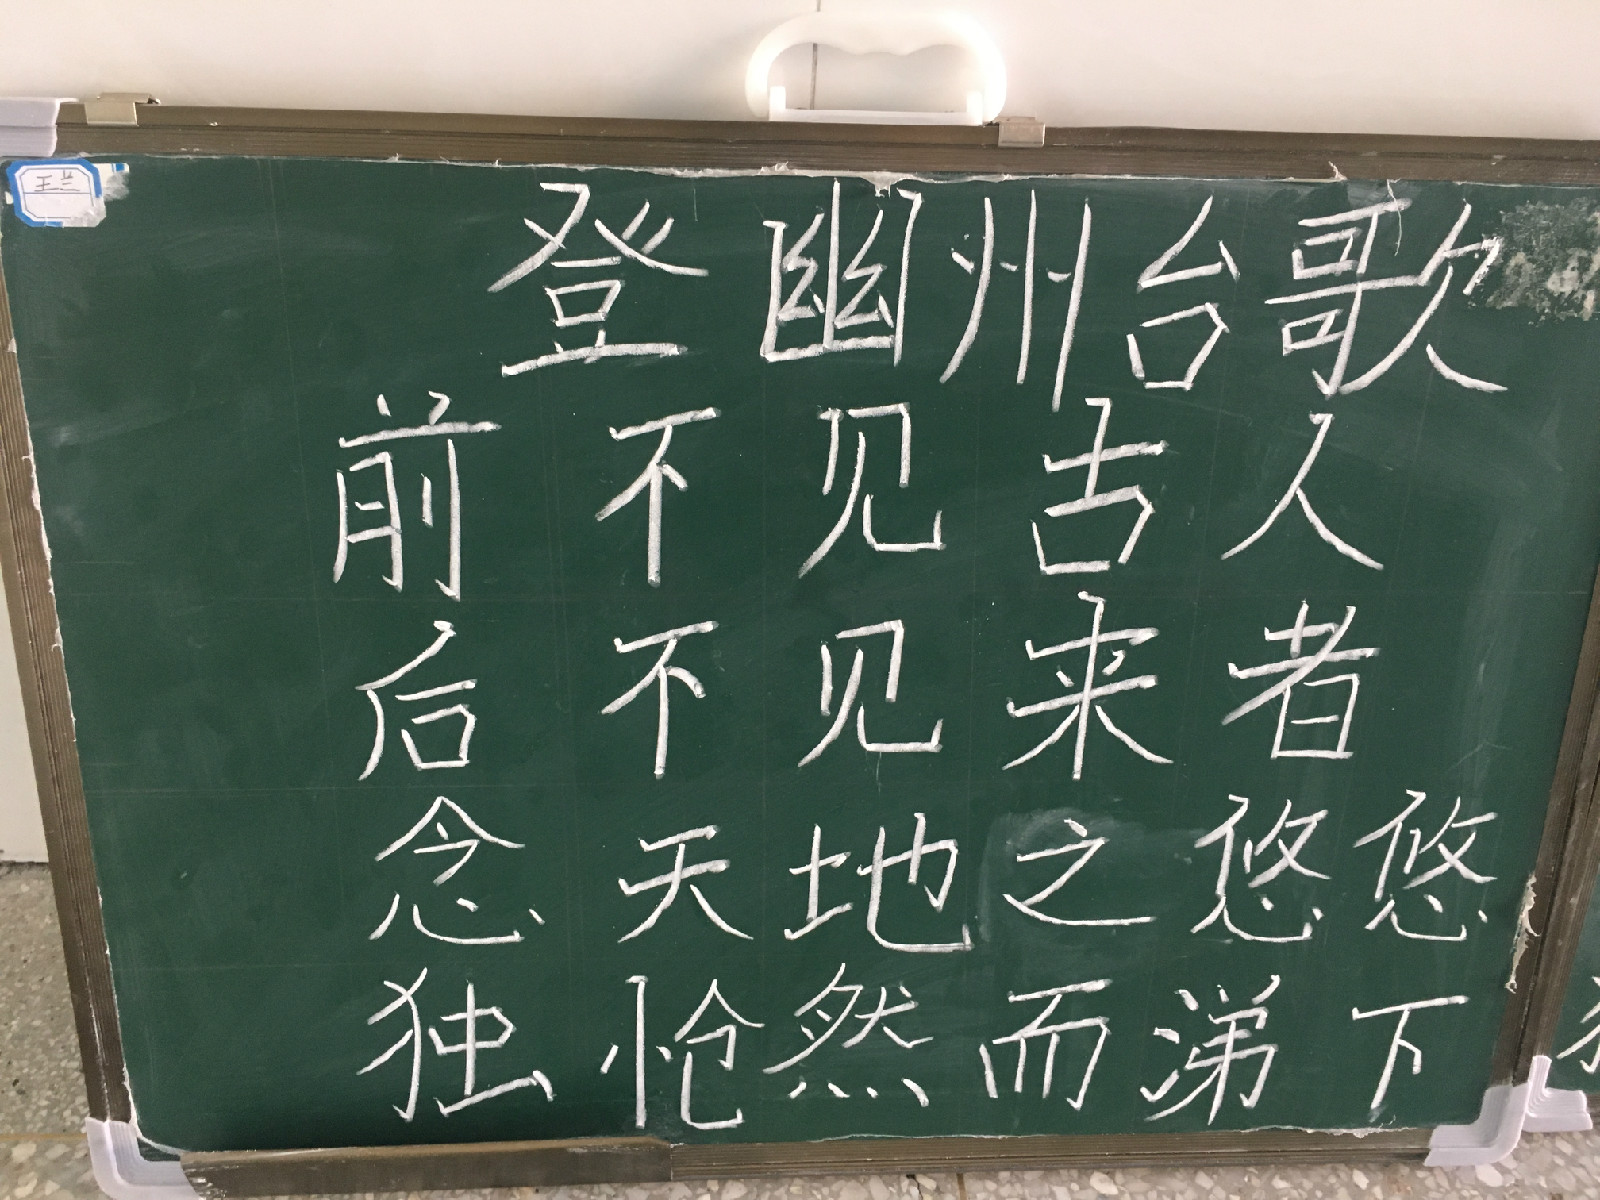 王兰
登幽州台歌
前不见古人
后不见来者
念天地之悠悠
独怆然而涕下